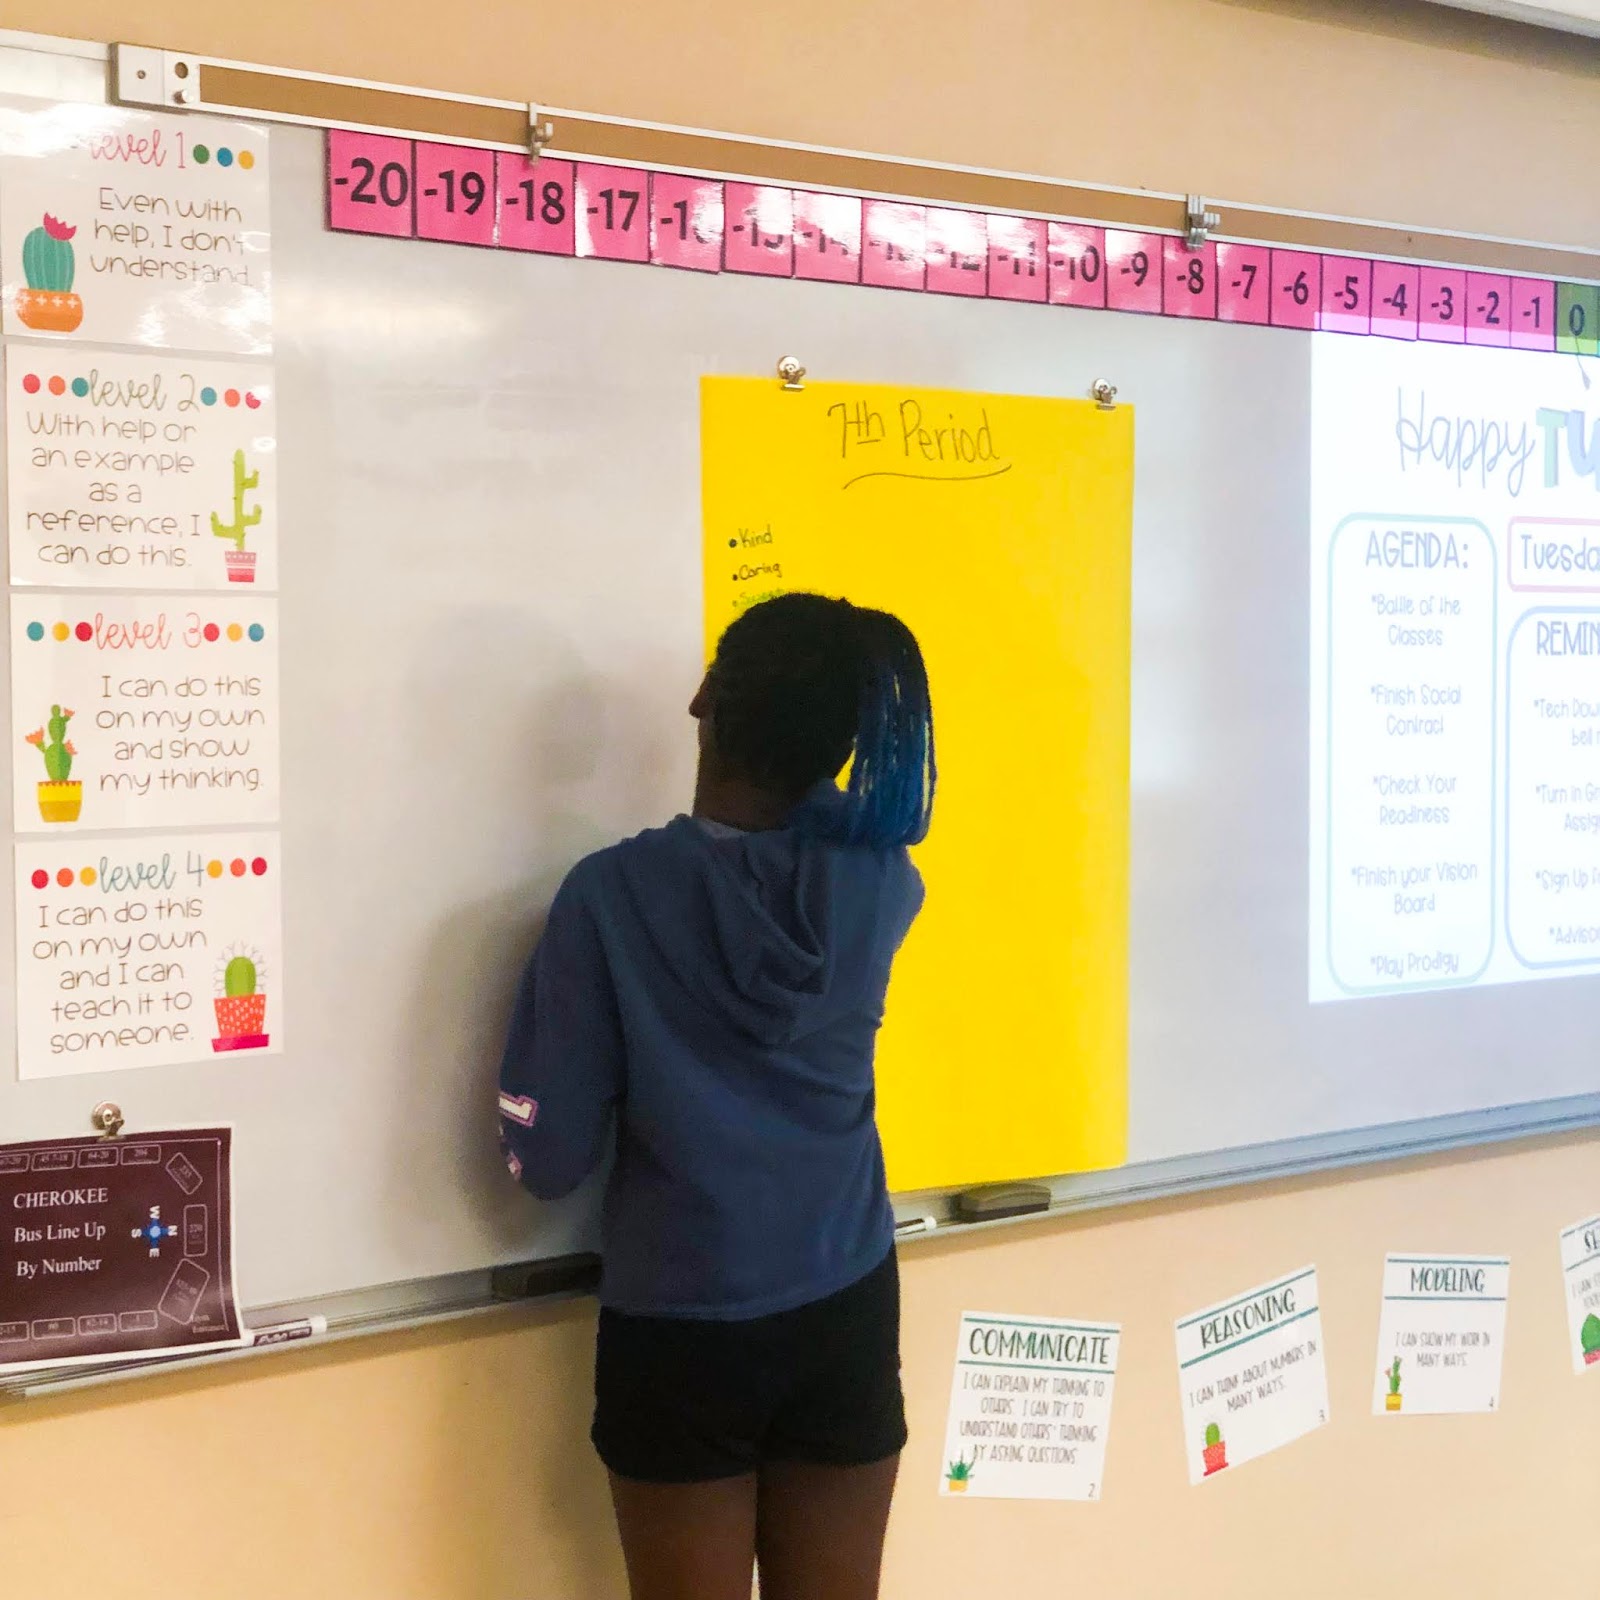 level 1
Even with
help, I don't
understand.
level 2
With help or
an example
as a
reference, I
can do this.
level 3
I can do this
on my own
and show
my thinking.
level 4
I can do this
on my own
and I can
teach it to
someone.
CHEROKEE
Bus Line Up
By Number
N
S
W
E
-20 -19 -18 -17 -16 -15 -14 -12 -11 -10 -9 -8 -7 -6 -5 -4 -3 -2 -1 0
7th Period
•Kind
•Caring
Happy
AGENDA:
*Battle of the
Classes
*Finish Social
Contract
*Check Your
Readiness
*Finish your Vision
Board
*Play Prodigy
Tuesda
REMIN
*Tech Dow
bell
*Turn in
Assig
*Sign Up
*Adviso
COMMUNICATE
I CAN EXPLAIN MY THINKING TO
OTHERS. I CAN TRY TO
UNDERSTAND OTHERS' THINKING
BY ASKING QUESTIONS.
2
REASONING
I CAN THINK ABOUT NUMBERS IN
MANY WAYS.
3
MODELING
I CAN SHOW MY WORK IN
MANY WAYS.
4